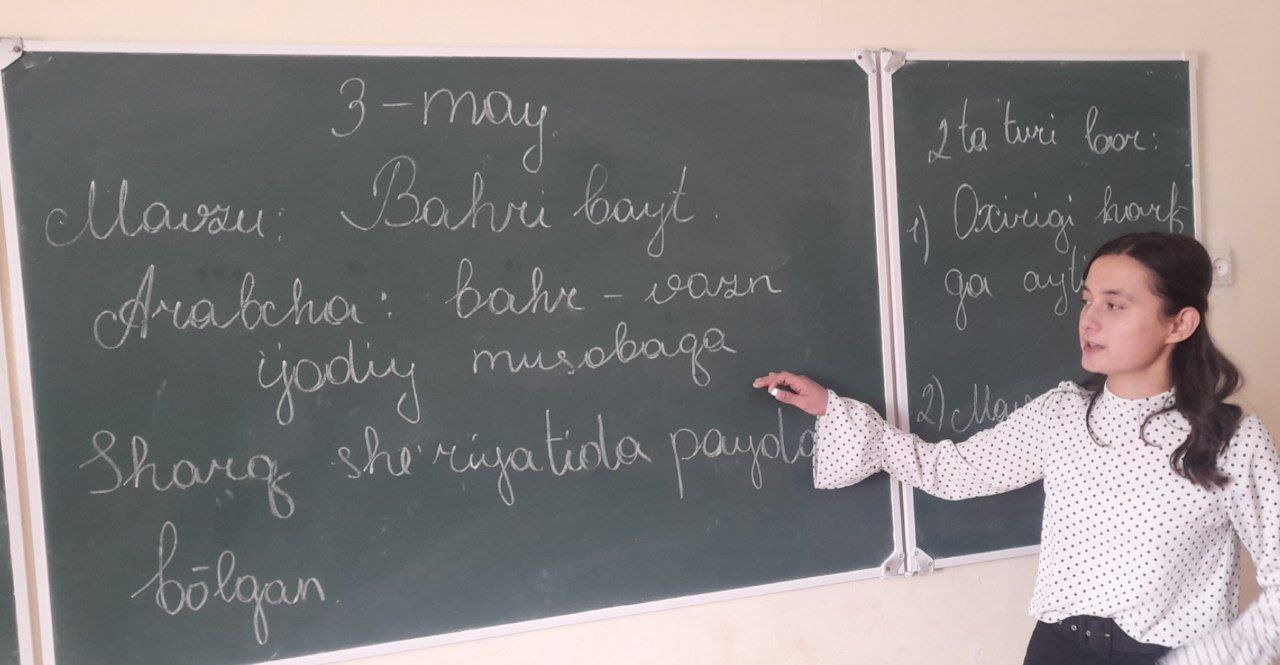 3-may.
Mavzu: Bahri bayt.
Arabcha: bahr - vazn
ijodiy musobaqa
Sharq she'riyatida payda
bōlgan.
2 ta turi bor:
1) Oxirigi harf
ga
2)